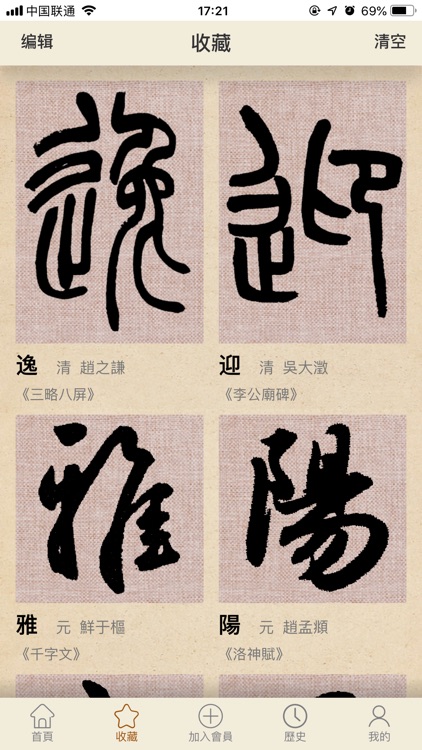 中国联通 17:21 69%
编辑 收藏 清空
逸 迎
逸 清 趙之謙
《三略八屏》
迎 清 吳大澂
《李公廟碑》
雅 陽
雅 元 鮮于樞
《千字文》
陽 元 趙孟頫
《洛神賦》
首頁 收藏 加入會員 歷史 我的